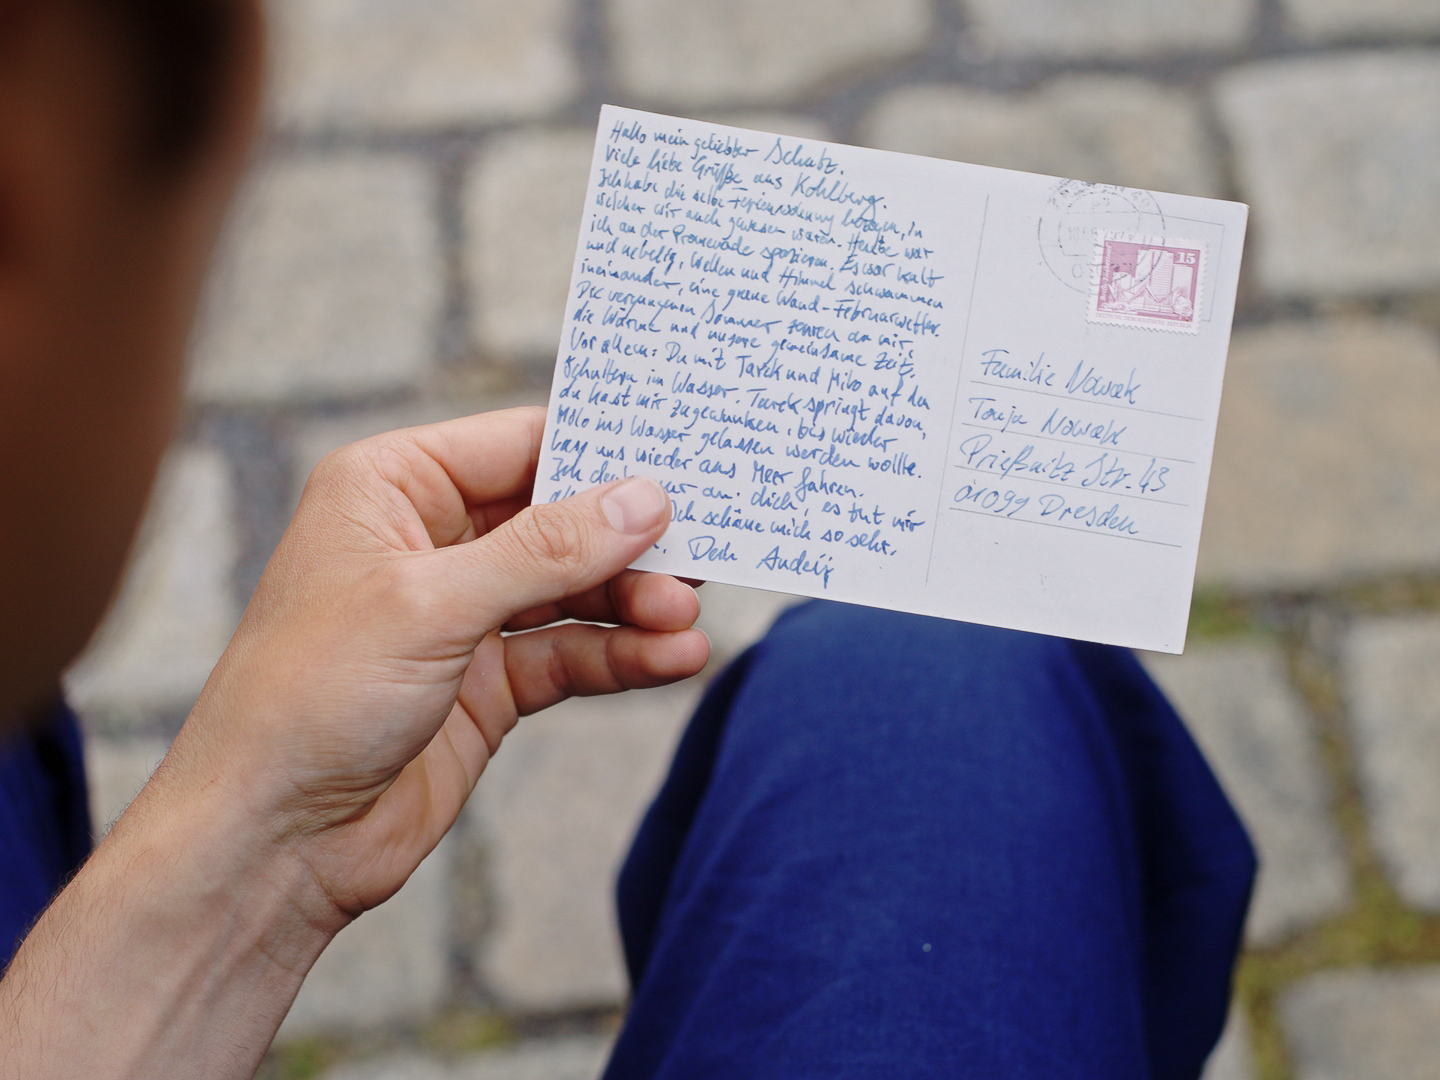 Hallo mein geliebter Schatz.
Viele liebe Grüße aus Kohlberg.
Ich habe die selbe Ferienwohnung bezogen, in
welcher wir auch gewesen waren. Heute war
ich an der Promenade spazieren. Es war kalt
und nebelig, Wellen und Himmel schwammen
ineinander, eine graue Wand - Februarwetter.
Die vergangenen Sommer in mir:
die Wärme und unsere gemeinsame Zeit.
Vor allem: Du mit Tarek und Milo auf den
Schultern im Wasser. Tarek springt davon,
du hast mir zugewunken, bis wieder
Milo ins Wasser gelassen werden wollte.
Lass uns wieder ans Meer fahren.
Ich an dich, es tut mir
Ich schäme mich so sehr.
Dein Andrij
15
DEUTSCHE DEMOKRATISCHE REPUBLIK
Familie Nowak
Tanja Nowak
Prießnitz Str. 43
01099 Dresden